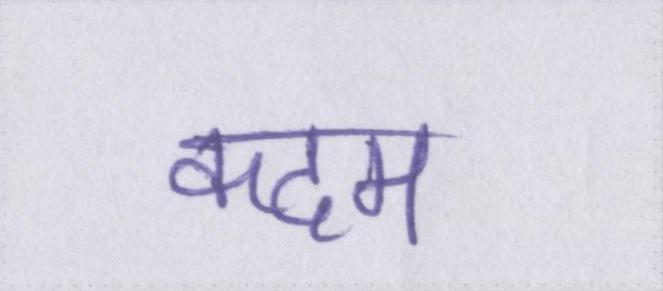 कदम